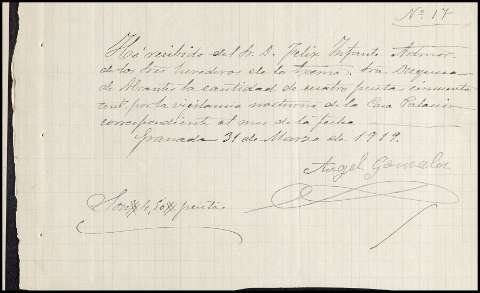 Nº 17
He recibido del Sr. D. Felix Infante Admor.
de los Sres herederos de la Excma. Sra. Duquesa
de Abrantes la cantidad de cuatro pesetas cincuenta
cent por la vigilancia nocturna de la Casa Palacio
correspondiente al mes de la fecha
Granada 31 de Marzo de 1919.
Angel Gonzalez
Son # 4,50 # pesetas